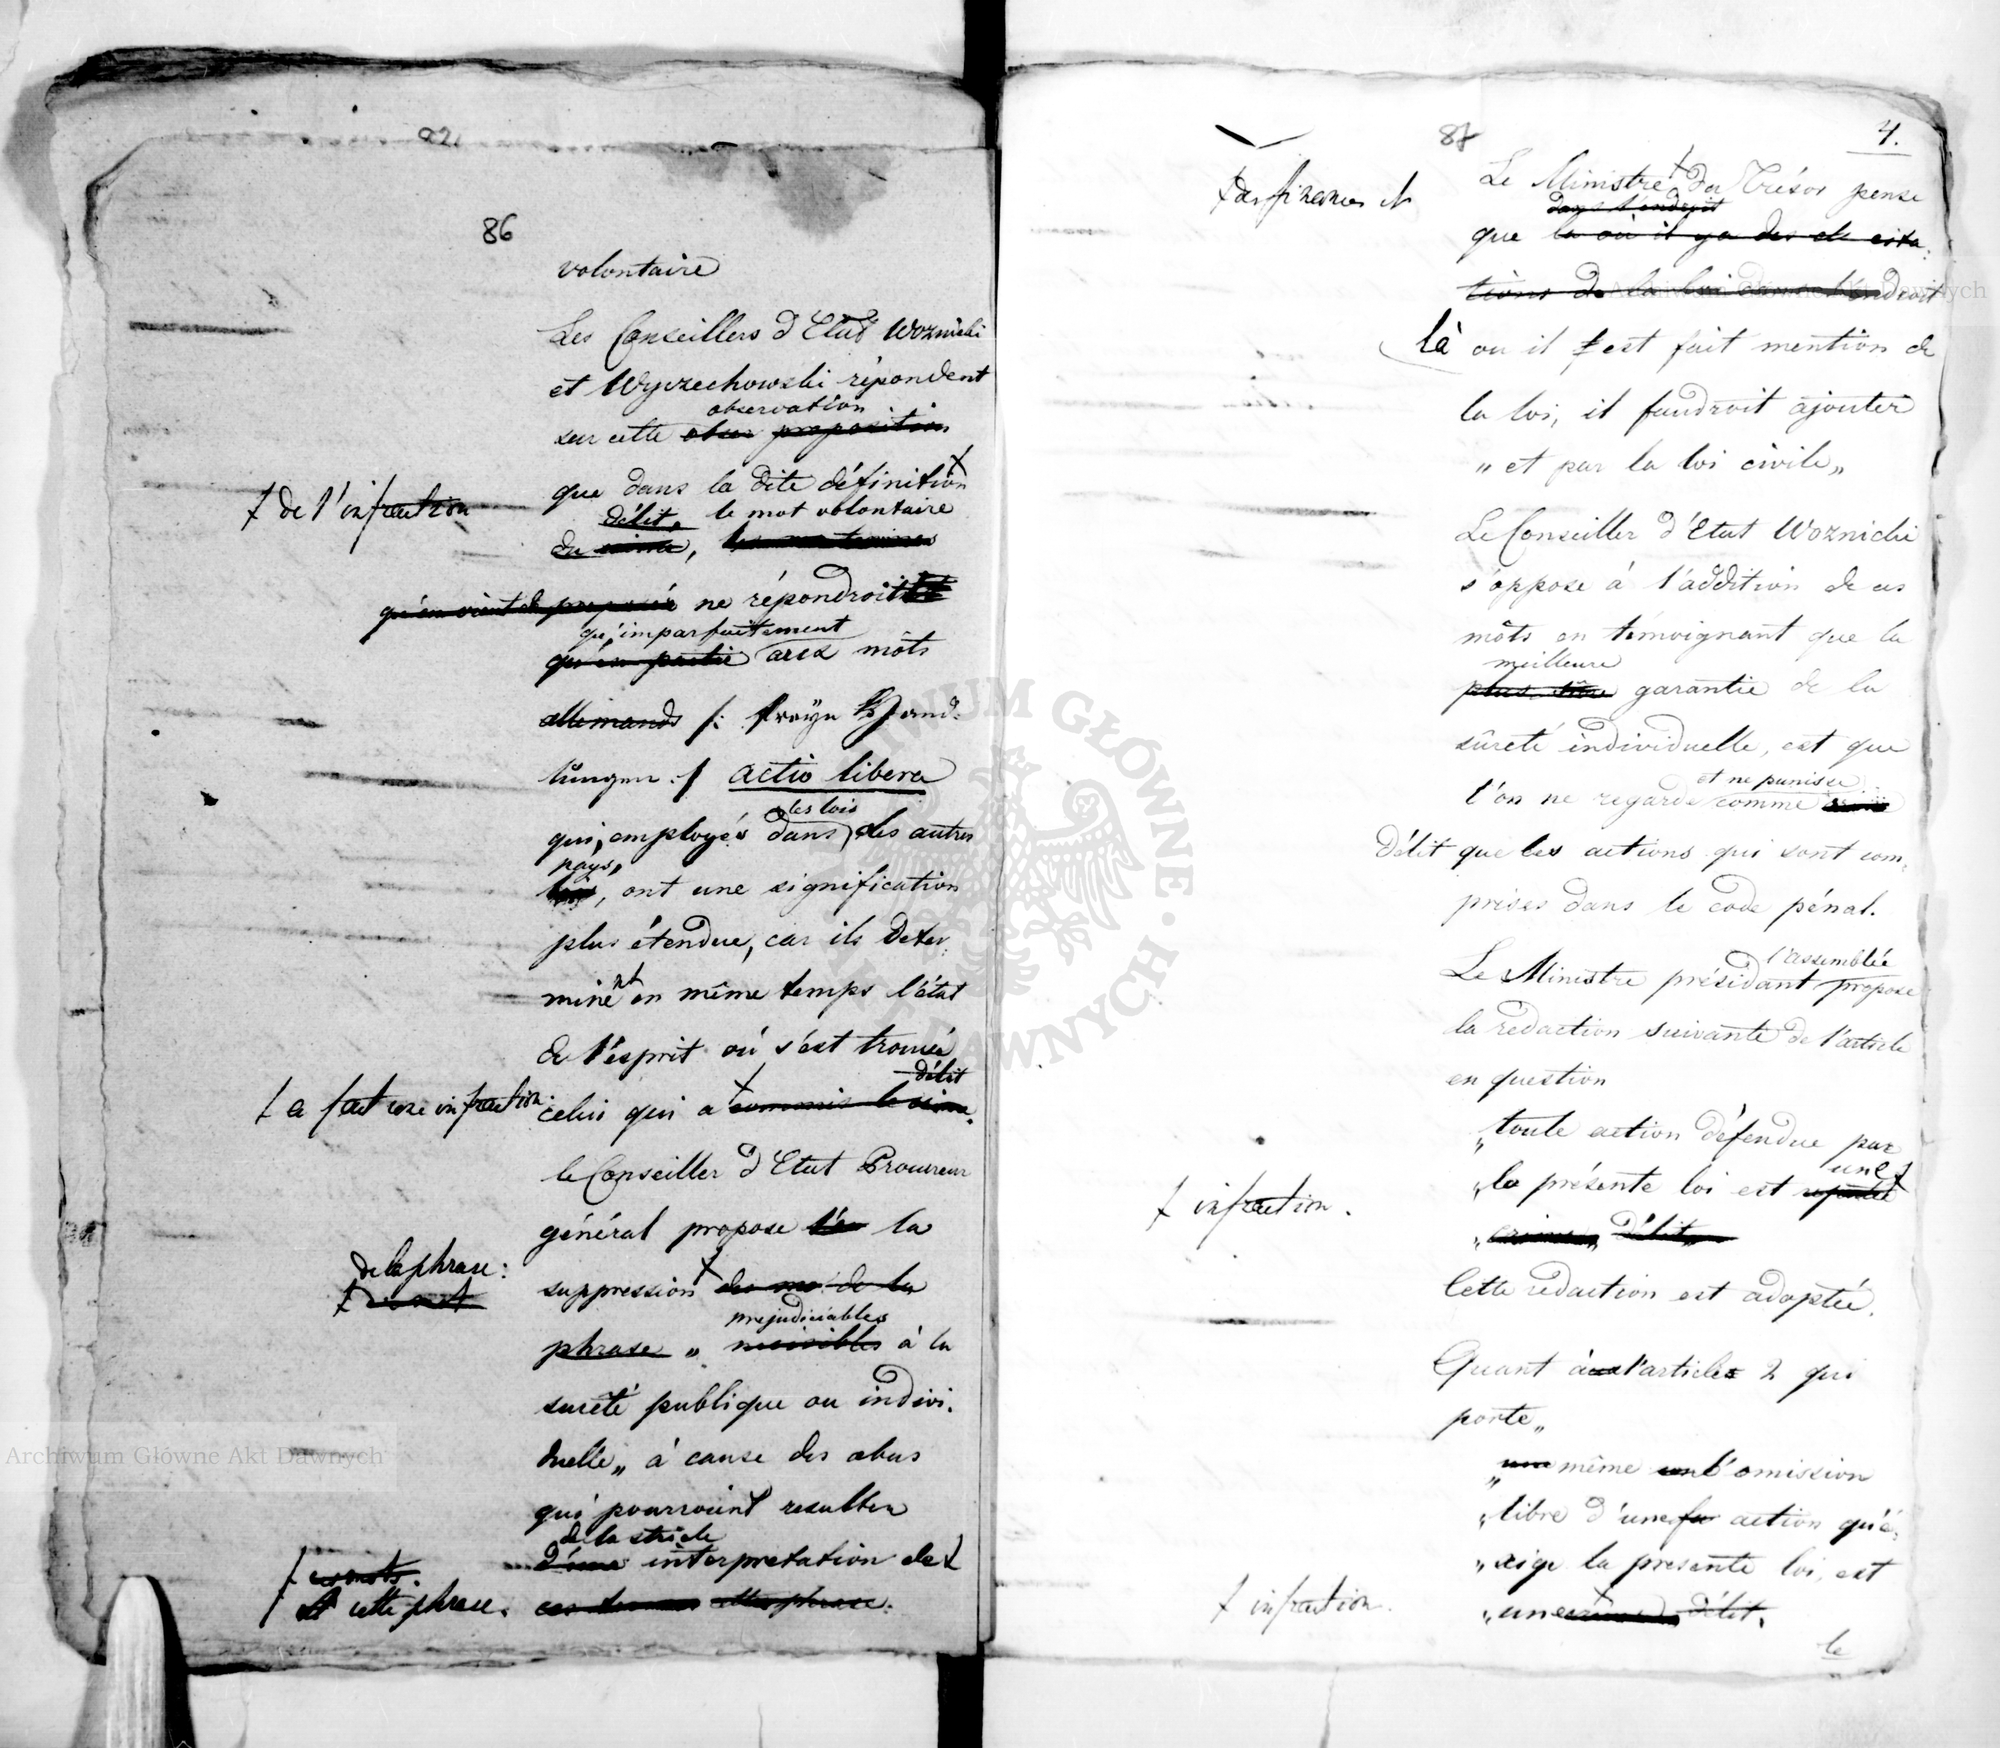 86
volontaire
Les Conseillers d'Etat Woznicki
et Wyczechowski répondent
observation
sur cette obser proposition
que dans la dite définition
+ de l'infraction
délit, le mot volontaire
du crime, les mots termes
qu'on vient de proposer ne répondroit
qu'imparfaitement
qu'en partie aux môts
allemands /: freyen Hand-
lungen :/ actio libera
les lois
qui, employés dans les autres
pays,
lois, ont une signification
plus étendue, car ils deter-
minent en même temps l'état
de l'esprit où s'est trouvé
délit
+ a fait une infraction.
celui qui a commis le crime.
le Conseiller d'Etat Procureur
général propose l'en la
de la phrase:
suppression des mo de la
préjudiciables
phrase „ nuisibles à la
sureté publique ou indivi-
duelle„ à cause des abus
qui pourroient resulter
de la stricte
d'une interpretation de +
+ ces mots.
et cette phrase.
ces termes cette phrase.
87
4.
+ des finances et
Le Ministre du Trésor pense
dans l'endroit
que là où il y a des de cita-
tions de la loi dans l'endroit
là ou il est fait mention de
la loi, il faudroit ajouter
„ et par la loi civile„
Le Conseiller d'Etat Woznicki
s'oppose à l'addition de ces
môts en témoignant que la
meilleure
plus sûre garantie de la
sûreté individuelle, est que
et ne punisse
l'on ne regarde comme crime
Délit que les actions qui sont com-
prises dans le code pénal.
l'assemblée
Le Ministre présidant propose
la redaction suivante de l'article
en question
„toute action défendue par
une +
„la présente loi est reputée
+ infraction.
„crime„ Délit„
Cette redaction est adoptée.
Quant à l'article 2 qui
porte„
„une même l'omission
„libre d'une action qu'e-
„xige la presente loi, est
+ infraction.
„une crime, délit.
le
Archiwum Główne Akt Dawnych
Archiwum Główne Akt Dawnych